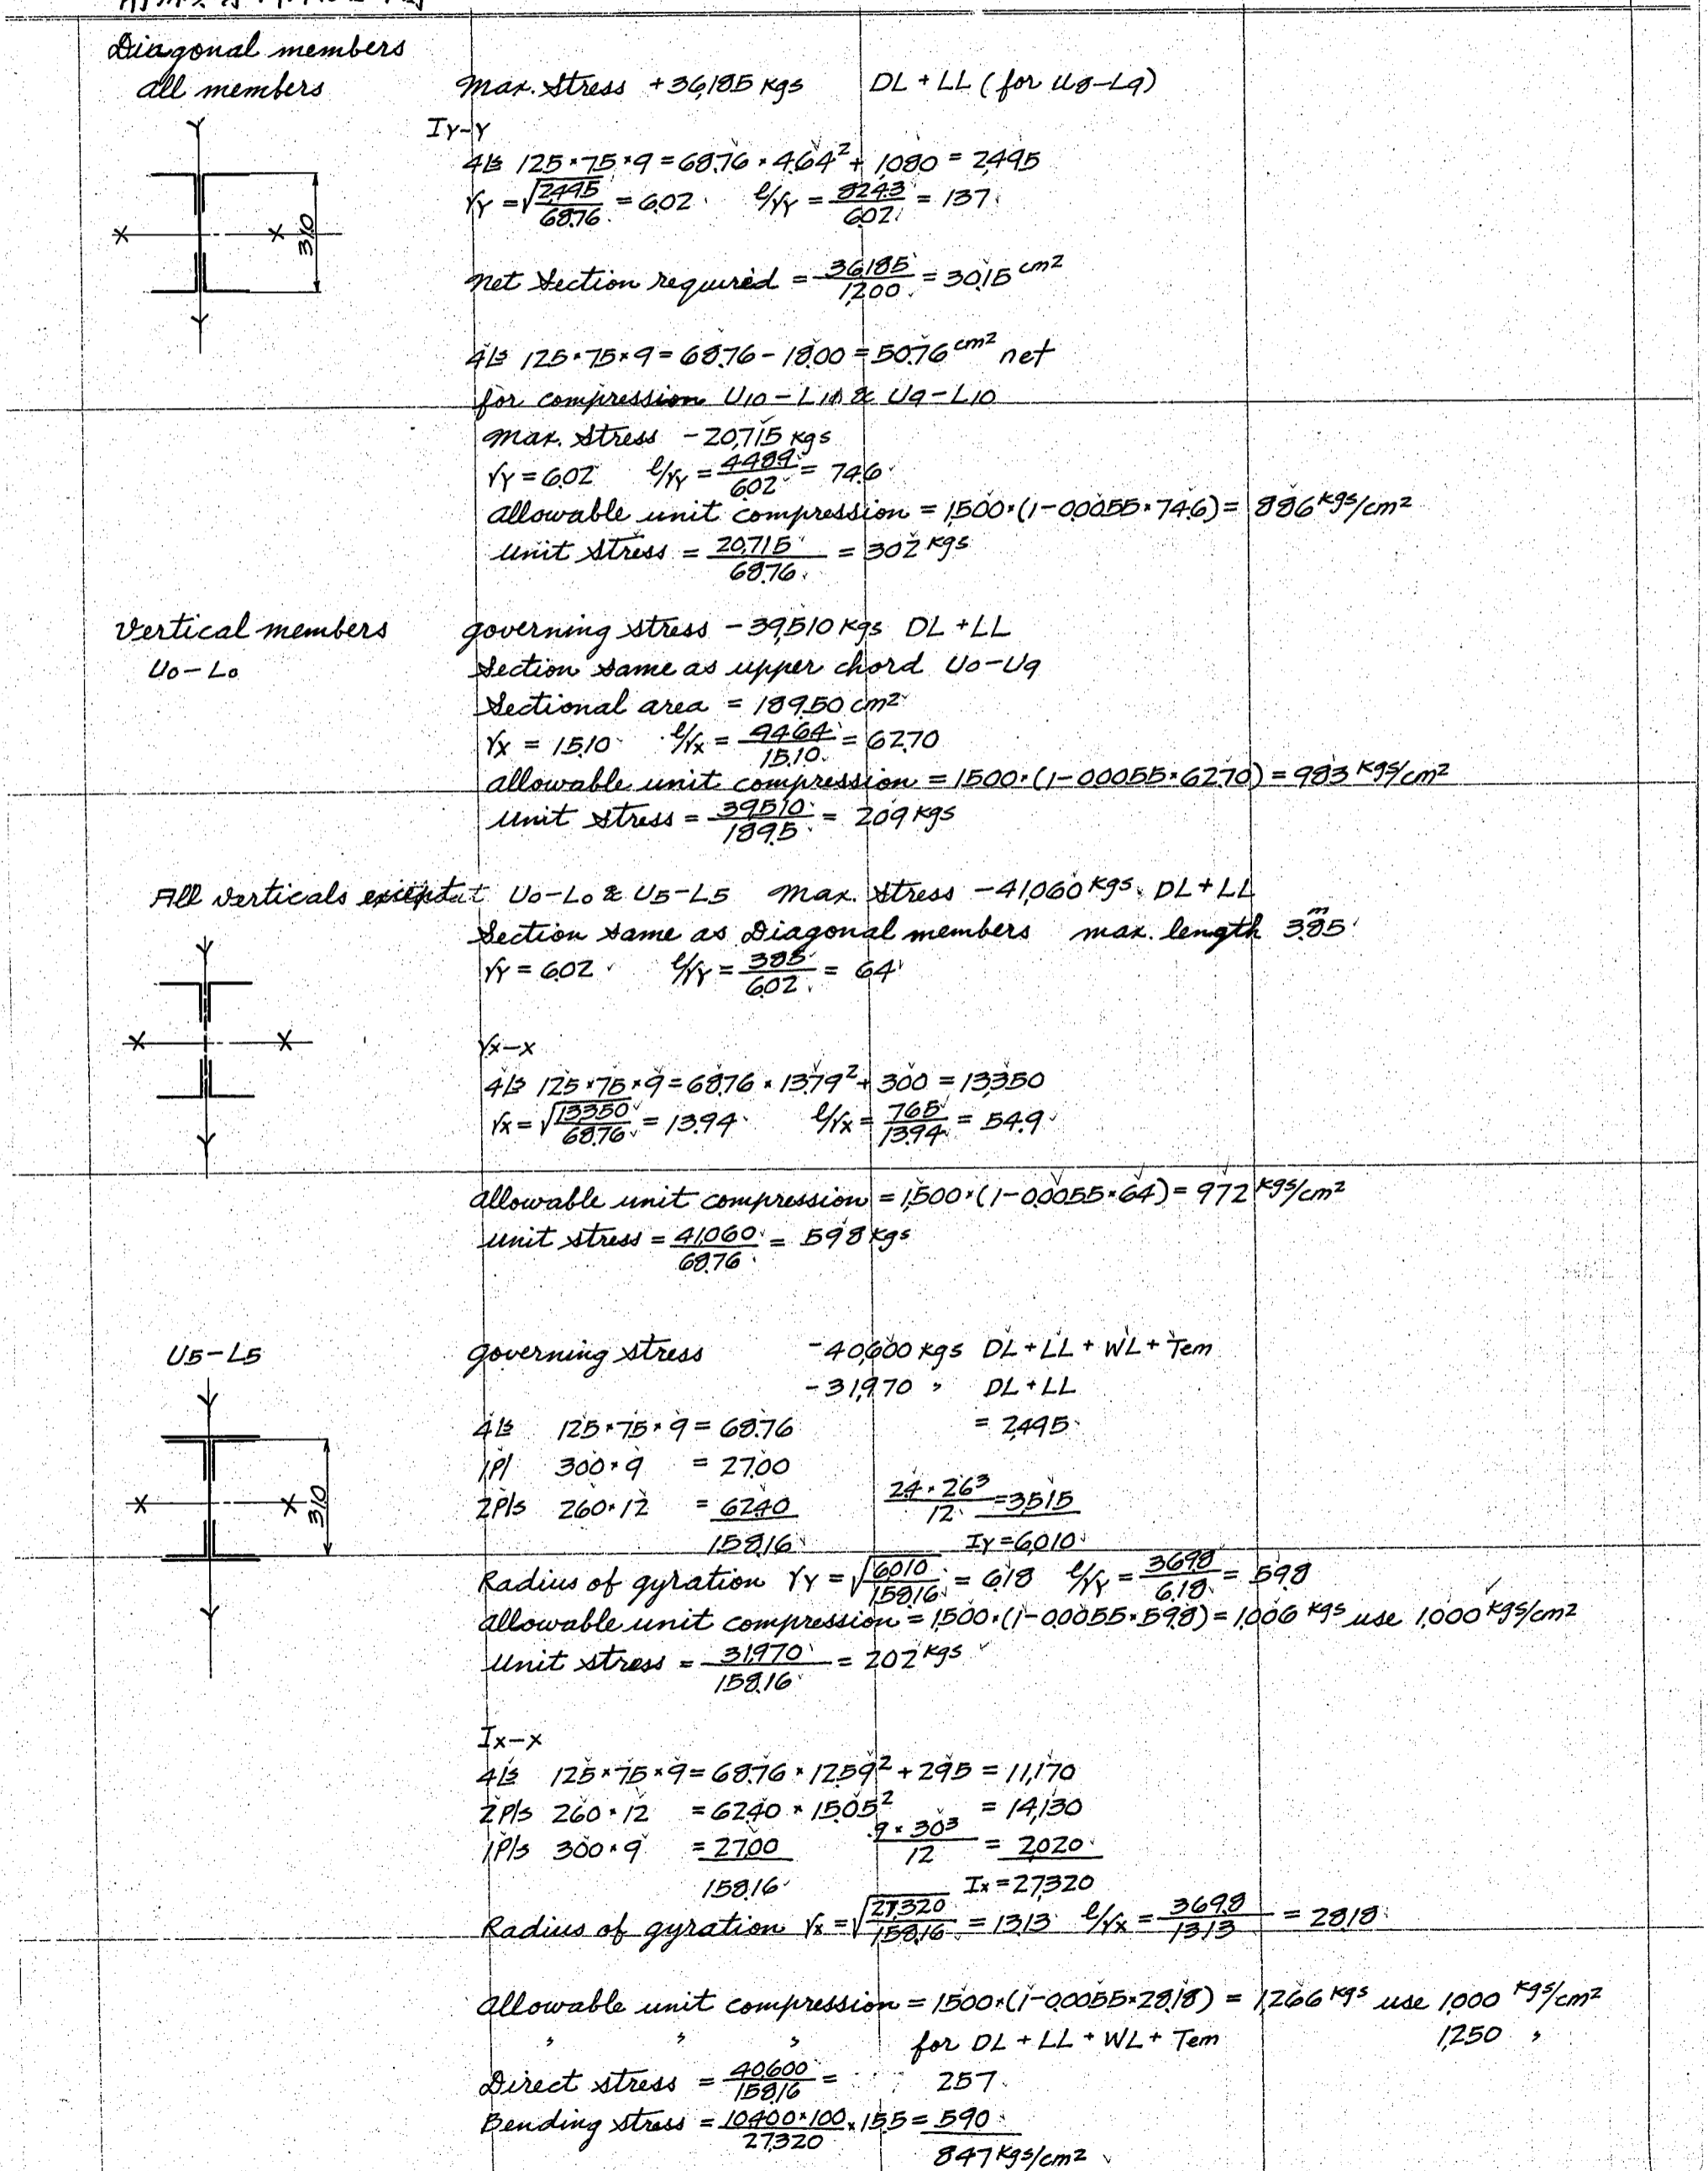 Diagonal members
all members
Max. Stress +36,185 kgs DL + LL (for U8-L9)
Iy-y
4Ls 125×75×9 = 68.76 × 4.64² + 1,080 = 2,495
ry = √2,495/68.76 = 6.02 l/ry = 824.3/6.02 = 137
31.0
Net Section required = 36,185/1,200 = 30.15 cm²
4Ls 125×75×9 = 68.76 - 18.00 = 50.76 cm² net
for compression U10-L10 & U9-L10
Max. Stress -20,715 kgs
ry = 6.02 l/ry = 448.9/6.02 = 74.6
allowable unit compression = 1,500×(1-0.0055×74.6) = 886 kgs/cm²
Unit Stress = 20,715/68.76 = 302 kgs
Vertical members
U0-L0
governing stress -39,510 kgs DL + LL
Section same as upper chord U0-U9
Sectional area = 189.50 cm²
rx = 15.10 l/rx = 946.4/15.10 = 62.70
allowable unit compression = 1500×(1-0.0055×62.70) = 983 kgs/cm²
Unit stress = 39,510/189.5 = 209 kgs
All verticals except U0-L0 & U5-L5 Max. Stress -41,060 kgs. DL + LL
Section same as Diagonal members max. length 3.85 m
ry = 6.02 l/ry = 385/6.02 = 64
rx-x
4Ls 125×75×9 = 68.76 × 13.79² + 300 = 13,350
rx = √13350/68.76 = 13.94 l/rx = 765/13.94 = 54.9
allowable unit compression = 1,500×(1-0.0055×64) = 972 kgs/cm²
unit stress = 41,060/68.76 = 598 kgs
U5-L5
governing stress -40,600 kgs DL + LL + WL + Tem
-31,970 " DL + LL
4Ls 125×75×9 = 68.76 = 2,495
1Pl 300×9 = 27.00
2Pls 260×12 = 62.40 2.4×26³/12 = 3,515
158.16 Iy = 6,010
31.0
Radius of gyration ry = √6,010/158.16 = 6.18 l/ry = 369.8/6.18 = 59.8
allowable unit compression = 1,500×(1-0.0055×59.8) = 1,006 kgs use 1,000 kgs/cm²
Unit stress = 31,970/158.16 = 202 kgs
Ix-x
4Ls 125×75×9 = 68.76 × 12.59² + 295 = 11,170
2Pls 260×12 = 62.40 × 15.05² = 14,130
1Pls 300×9 = 27.00 .9×30³/12 = 2,020
158.16 Ix = 27,320
Radius of gyration rx = √27,320/158.16 = 13.13 l/rx = 369.8/13.13 = 28.18
allowable unit compression = 1,500×(1-0.0055×28.18) = 1,266 kgs use 1,000 kgs/cm²
" " " for DL + LL + WL + Tem 1,250 "
Direct stress = 40,600/158.16 = 257
Bending stress = 10400×100/27,320 × 15.5 = 590
847 kgs/cm²